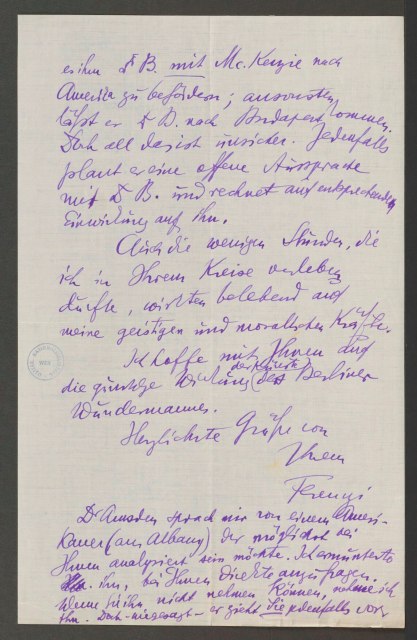 es ihm D B. mit Mc. Kenzie nach
Amerika zu befördern; ansonsten
läßt er D B. nach Budapest kommen.
Doch all das ist unsicher. Jedenfalls
plant er eine offene Aussprache
mit D B. und rechnet auf entsprechende
Einwirkung auf ihn.
Auch die wenigen Stunden, die
ich in Ihrem Kreise verleben
durfte, wirkten belebend auf
meine geistigen und moralischen Kräfte.
Ich hoffe mit Ihnen auf
die günstige Wirkung der Künste des Berliner
Wundermannes.
Herzlichste Grüße von
Ihrem
Ferenczi
Dr Amsden sprach mir von einem Ameri-
kaner (aus Albany) der möglichst bei
Ihnen analysiert sein möchte. Ich ermunterte
ihn, bei Ihnen direkte anzufragen.
Wenn Sie ihn nicht nehmen können, nehme ich
ihn. Doch - wie gesagt - er zieht Sie jedenfalls vor.